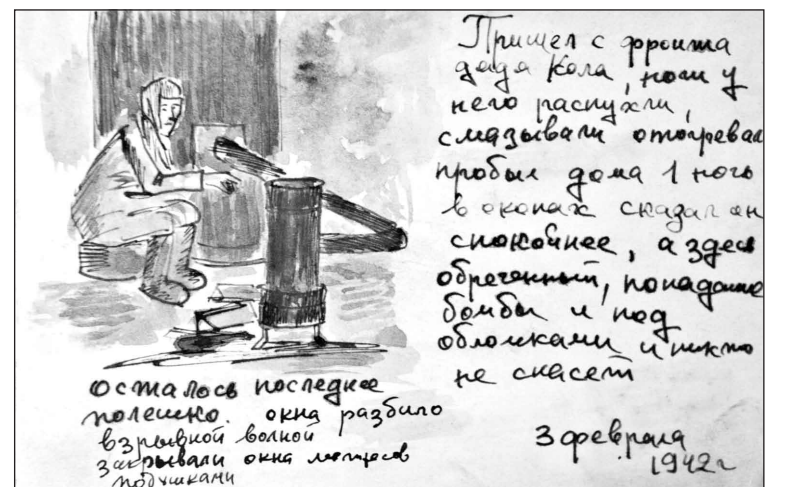 Пришел с фронта
дядя Коля, ноги у
него распухли,
смазывали отогревал
пробыл дома 1 ночь
в окопах сказал он
спокойнее, а здесь
обреченный, попадание
бомбы и под
обломками и никто
не спасет
3 февраля
1942 г
осталось последнее
полешко. окна разбило
взрывной волной
закрывали окна матрасов
подушками